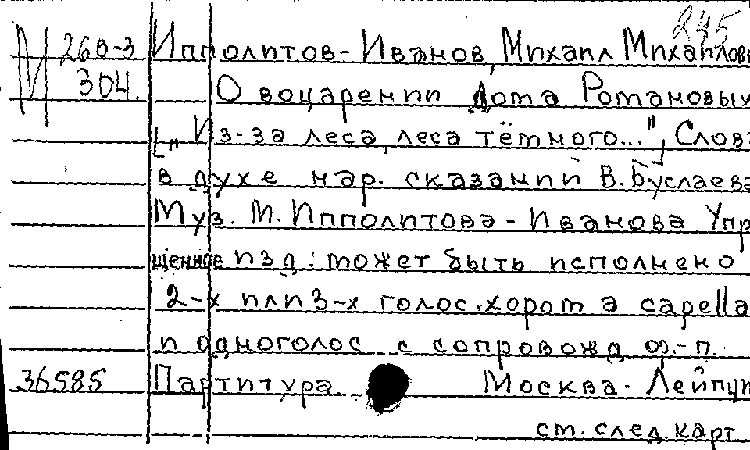 245
М 260-3 Ипполитов-Иванов, Михаил Михайлов
304 О воцарении Дома Романовых
[„Из-за леса, леса тёмного...", Слова
в духе нар. сказаний В. Буслаева
Муз. М. Ипполитова-Иванова Упр
щенное изд: может быть исполнено
2-х или 3-х голос. хором a capella
и одноголос с сопровожд ф.-п.
36585 Партитура Москва-Лейпци
см. след. карт